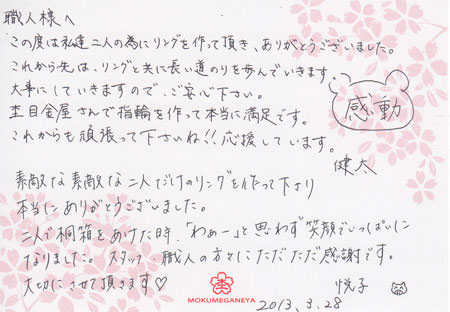 職人様へ
この度は私達二人の為にリングを作って頂き、ありがとうございました。
これから先は、リングと共に長い道のりを歩んでいきます。
大事にしていきますので、ご安心下さい。
杢目金屋さんで指輪を作って本当に満足です。
これからも頑張って下さいね!!応援しています。
感動
健太
素敵な素敵な二人だけのリングを作って下さり
本当にありがとうございました。
二人で桐箱をあけた時、「わぁー」と思わず笑顔でいっぱいに
なりました。スタッフ・職人の方々にただただ感謝です。
大切にさせて頂きます♡
悦子
MOKUMEGANEYA
2013.3.28